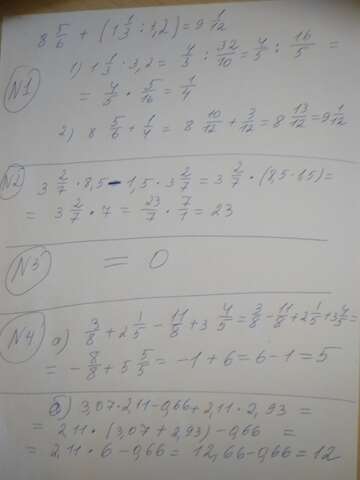 8 5/6 + (1 1/3 : 3,2) = 9 1/12
N1
1) 1 1/3 : 3,2 = 4/3 : 32/10 = 4/3 : 16/5 =
= 4/3 · 5/16 = 1/4
2) 8 5/6 + 1/4 = 8 10/12 + 3/12 = 8 13/12 = 9 1/12
N2
3 2/7 · 8,5 - 1,5 · 3 2/7 = 3 2/7 · (8,5 - 1,5) =
= 3 2/7 · 7 = 23/7 · 7/1 = 23
N3 = 0
N4 а) 3/8 + 2 1/5 - 11/8 + 3 4/5 = 3/8 - 11/8 + 2 1/5 + 3 4/5 =
= - 8/8 + 5 5/5 = -1 + 6 = 6 - 1 = 5
б) 3,07 · 2,11 - 0,66 + 2,11 · 2,93 =
= 2,11 · (3,07 + 2,93) - 0,66 =
= 2,11 · 6 - 0,66 = 12,66 - 0,66 = 12